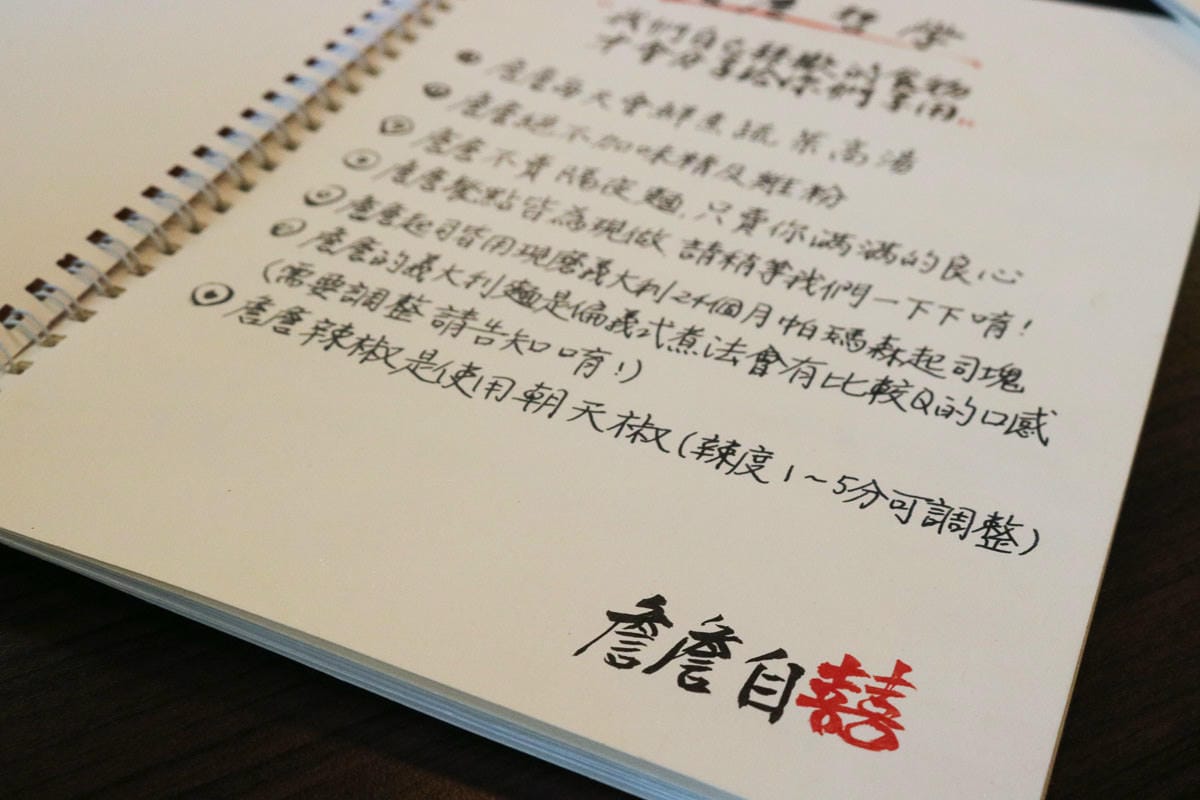 哲学
"我們自己喜歡的食物
才會分享給你們享用"
詹詹每天會鮮煮蔬菜高湯
詹詹絕不加味精及雞粉
詹詹不賣陽浞麵，只賣你滿滿的良心
詹詹餐點皆為現做 請稍等我們一下下唷！
詹詹起司皆用現磨義大利24個月帕瑪森起司塊
詹詹的義大利麵是偏義式煮法會有比較Q的口感
(需要調整 請告知唷！)
詹詹辣椒是使用朝天椒(辣度1～5分可調整)
詹詹自囍